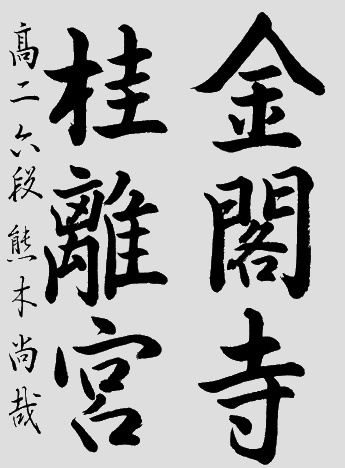 金閣寺
桂離宮
高二 六段 熊木尚哉